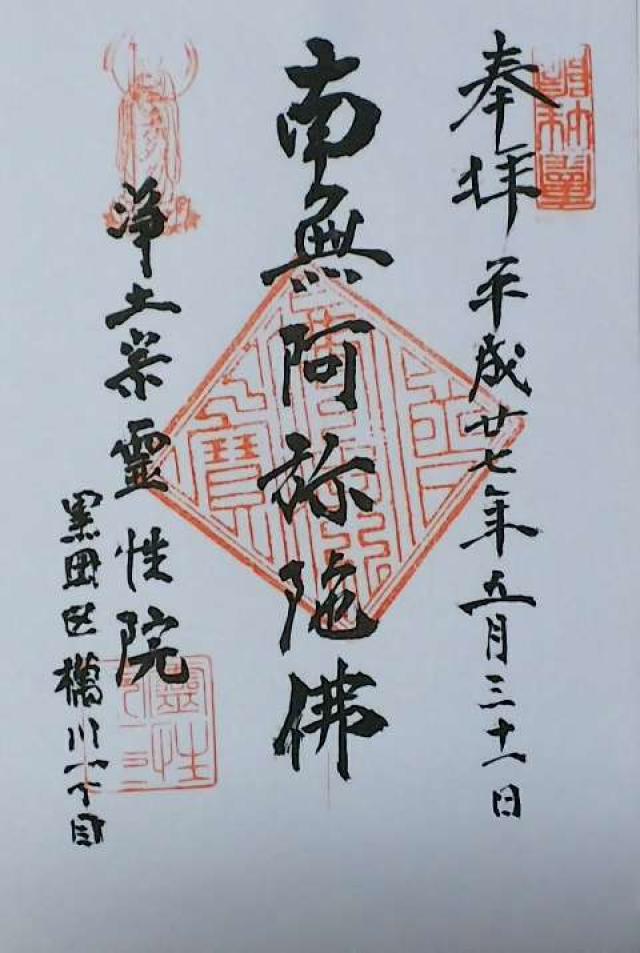 奉拝 平成廿七年五月三十一日
南無阿弥陀佛
浄土宗霊性院
墨田区橘川一丁目
靈性